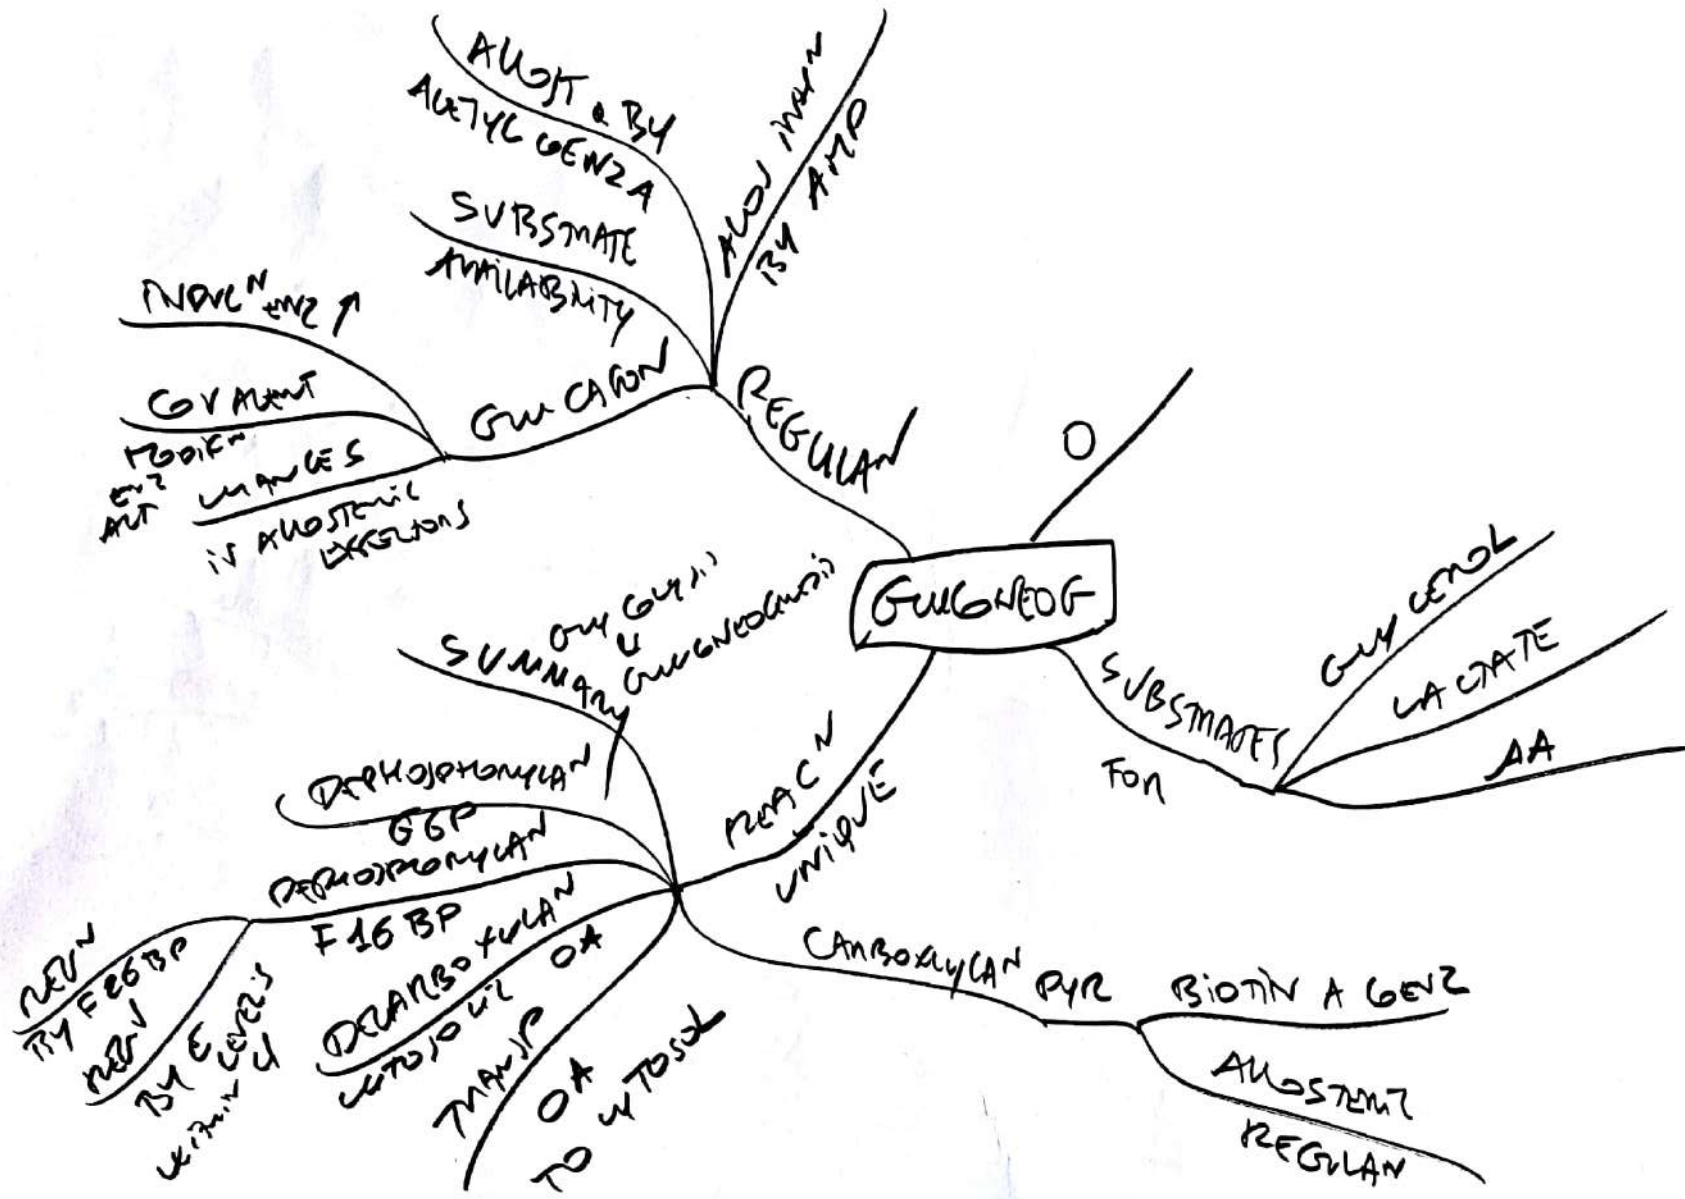 GLUCONEOG
O
SUBSTRATES
FOR
GLYCEROL
LACTATE
AA
REGULAN
ALLOS INHIBN
BY AMP
ALLOST BY
ACETYL COENZ A
SUBSTRATE
AVAILABILITY
GLUCAGON
INDUCN ENZ ↑
COVALENT
MODIFN
ENZ
ACT
CHANGES
IN ALLOSTERIC
EFFECTORS
REACN
UNIQUE
SUMMARY
GLYCOLYSIS
GLUCONEOGENESIS
DEPHOSPHORYLAN
G6P
DEPHOSPHORYLAN
F16BP
REGN
BY F26BP
REGN
BY E LEVELS
WITHIN
DECARBOXYLAN
CYTOSOLIC OA
TRANSP
OA
TO CYTOSOL
CARBOXYLAN PYR
BIOTIN A COENZ
ALLOSTERIC
REGULAN